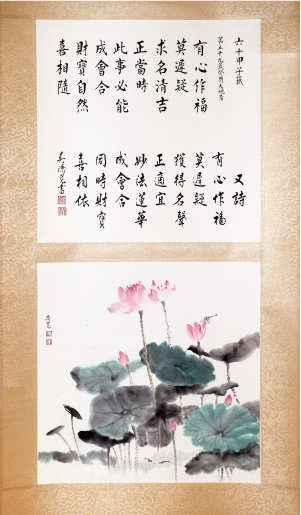 六十甲子籤
第五十九籤癸酉天地
有心作福
莫遲疑
求名清吉
正當時
此事必能
成會合
財寶自然
喜相隨
又詩
有心作福
莫遲疑
獲得名聲
正適宜
妙法蓮華
成會合
同時財寶
喜相依